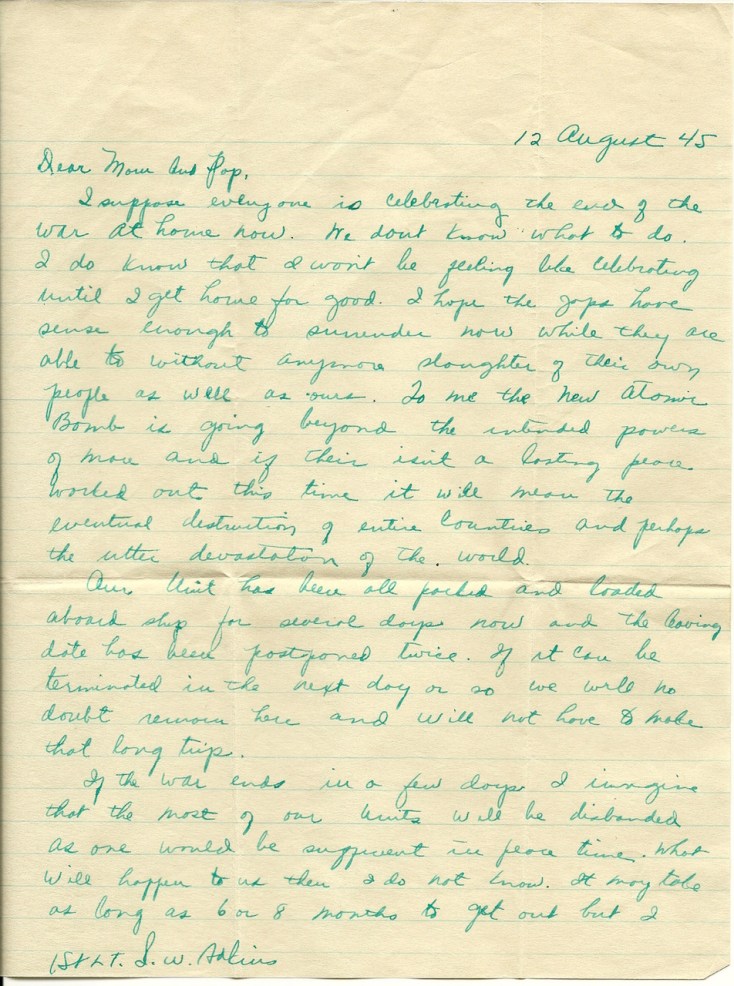 12 August 45
Dear Mom and Pop,
I suppose everyone is celebrating the end of the
war at home now. We dont know what to do.
I do know that I wont be feeling like celebrating
until I get home for good. I hope the japs have
sense enough to surrender now while they are
able to without anymore slaughter of their own
people as well as ours. To me the new Atomic
Bomb is going beyond the intended powers
of man and if their isnt a lasting peace
worked out this time it will mean the
eventual destruction of entire Countries and perhaps
the utter devastation of the world.
Our Unit has been all packed and loaded
aboard ship for several days now and the leaving
date has been postponed twice. If it can be
terminated in the next day or so we will no
doubt remain here and will not have to make
that long trip.
If the war ends in a few days I imagine
that the most of our Units will be disbanded
as one would be sufficient in peace time. What
will happen to us then I do not know. It may take
as long as 6 or 8 months to get out but I
1st LT. W. Adkins